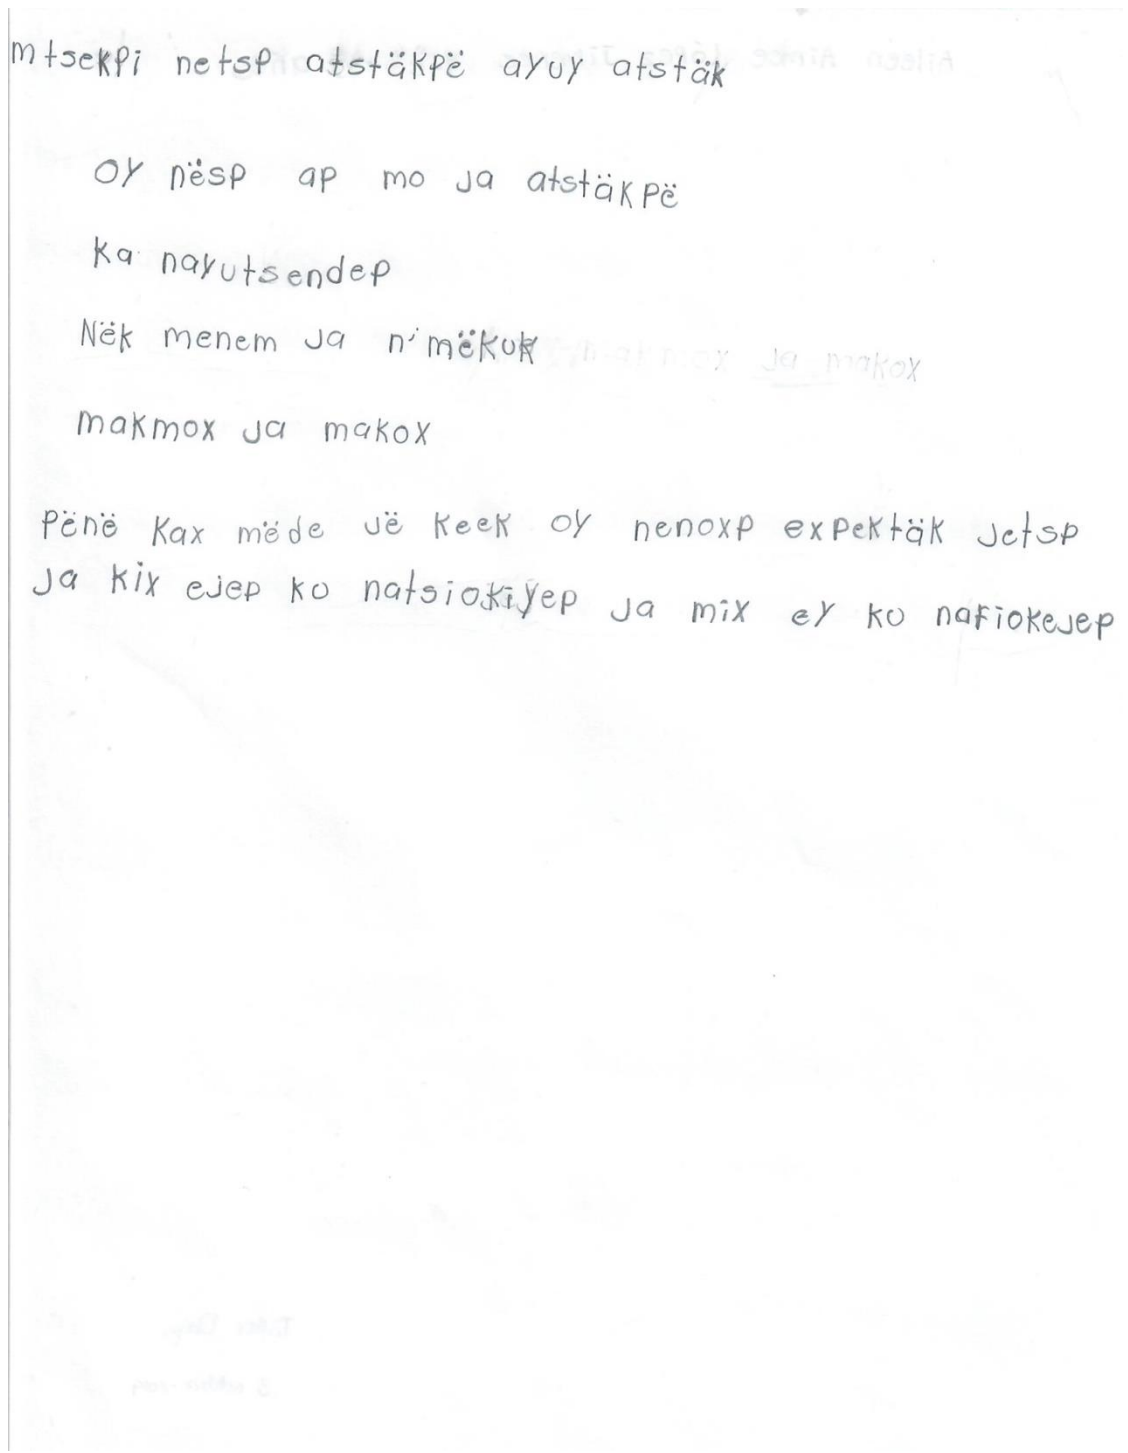 mtsekpi netsp atstäkpë ayuy atstäk
oy nësp ap mo ja atstäkpë
ka nayutsendep
Nëk menem ja n'mëkuk
makmox ja makox
Pënë kax mëde jë keek oy nenoxp expektäk jetsp
ja kix ejep ko natsiokiyep ja mix ey ko nakiokejep